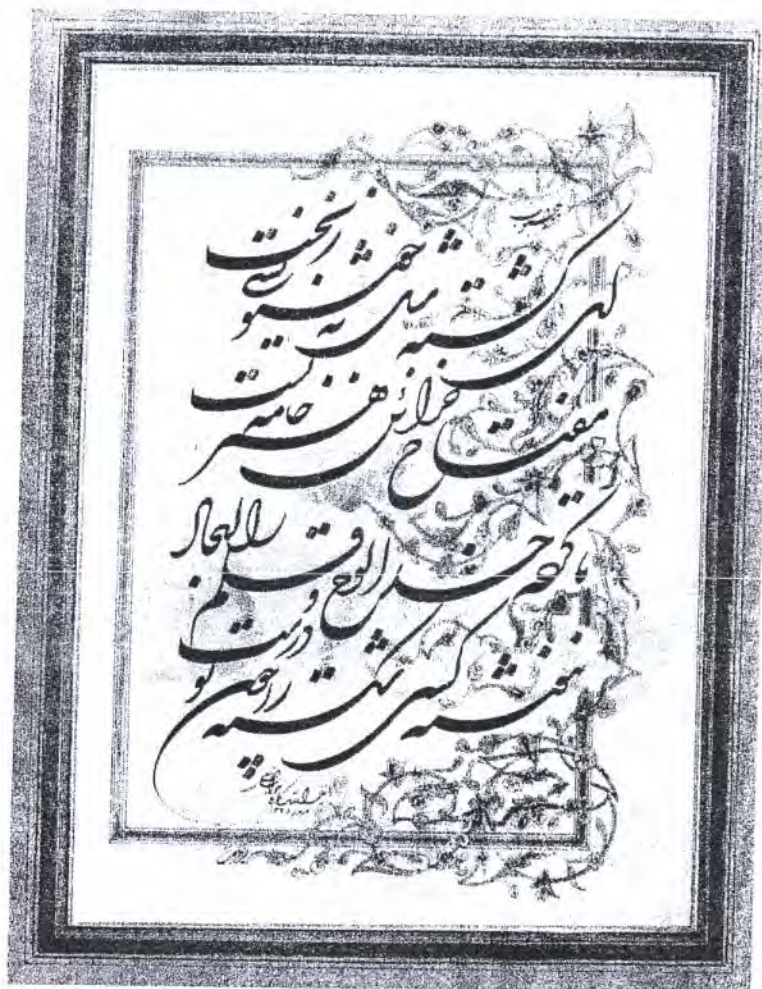 ای گشته مثل به خوشنویسی ز نخست
مفتاح خزائن هنر خامه تست
تا کرده خدا لوح و قلم را ایجاد
ننوشته کسی شکسته را چون تو درست